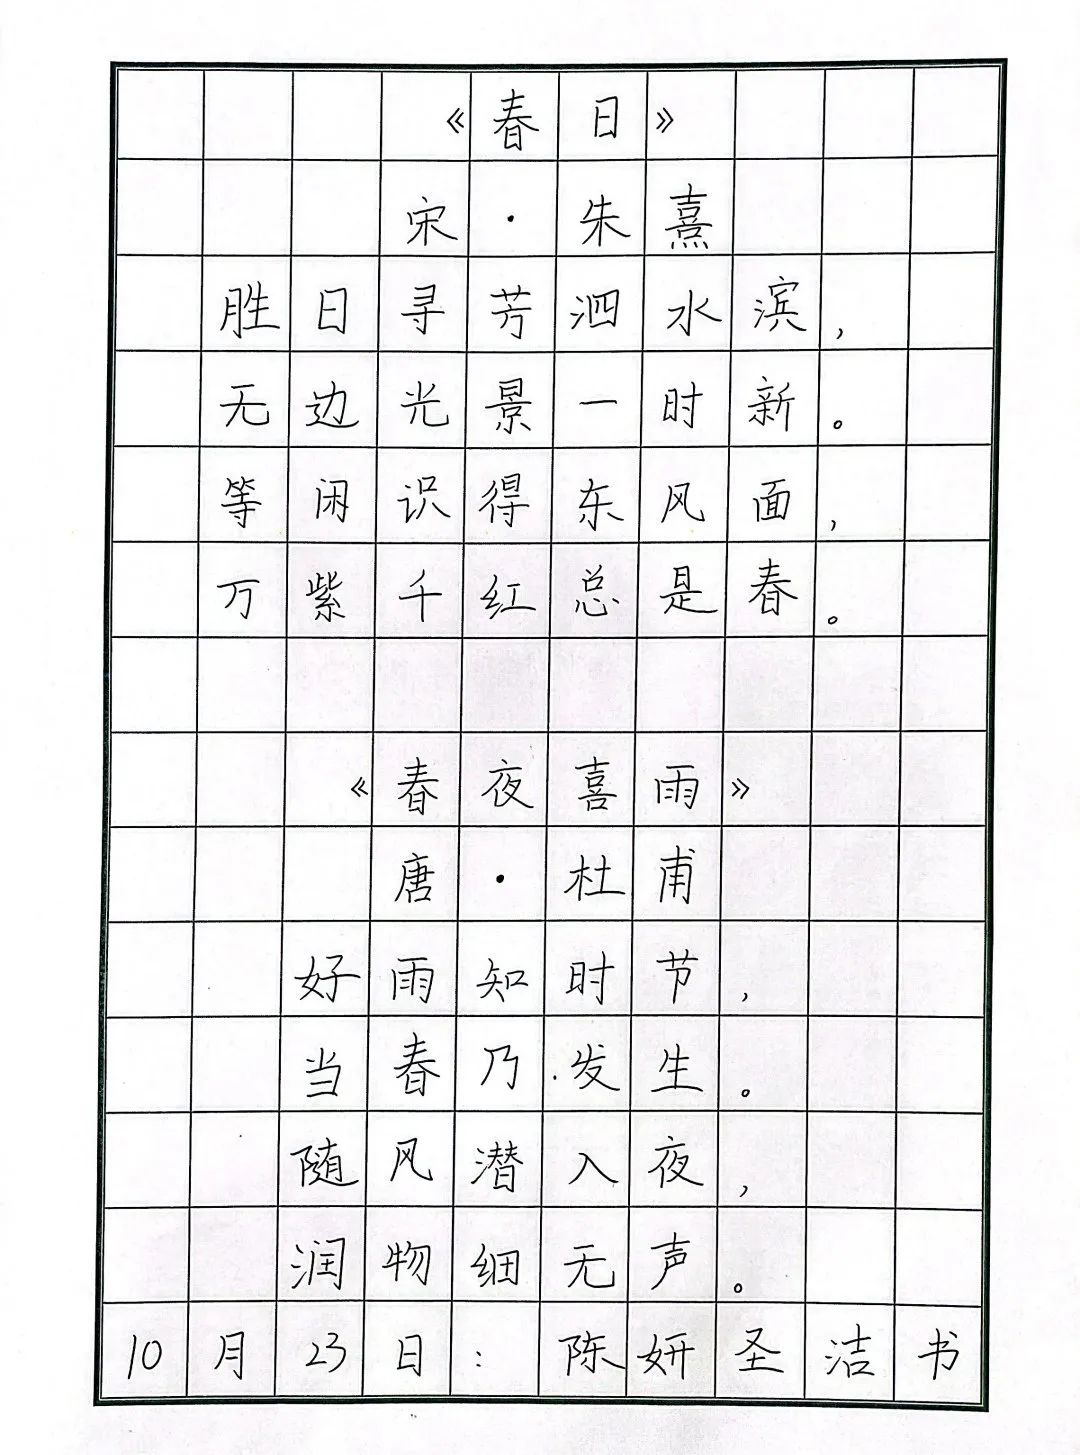 《春日》
宋·朱熹
胜日寻芳泗水滨，
无边光景一时新。
等闲识得东风面，
万紫千红总是春。
《春夜喜雨》
唐·杜甫
好雨知时节，
当春乃发生。
随风潜入夜，
润物细无声。
10月23日：陈妍圣洁书